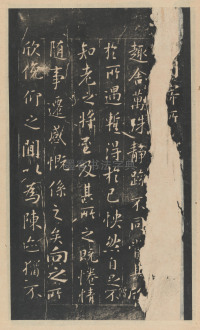 寄所
趣舍萬殊靜躁不同當其
於所遇蹔得於己怏然自足不
知老之將至及其所之既惓情
隨事遷感慨係之矣向之所
欣俛仰之閒以為陳迹猶不